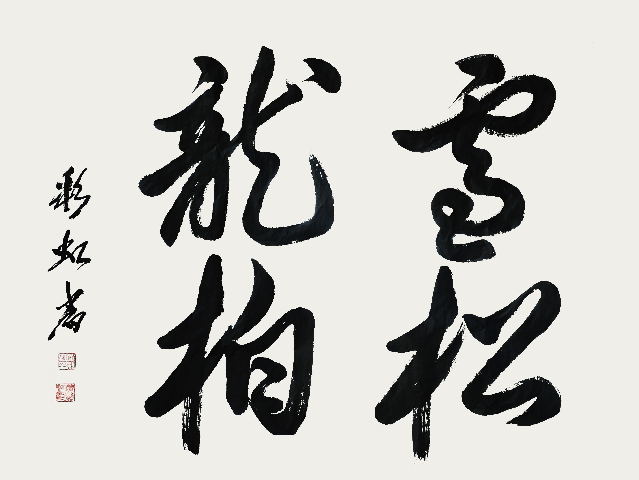 雪松
龍柏
彩虹書